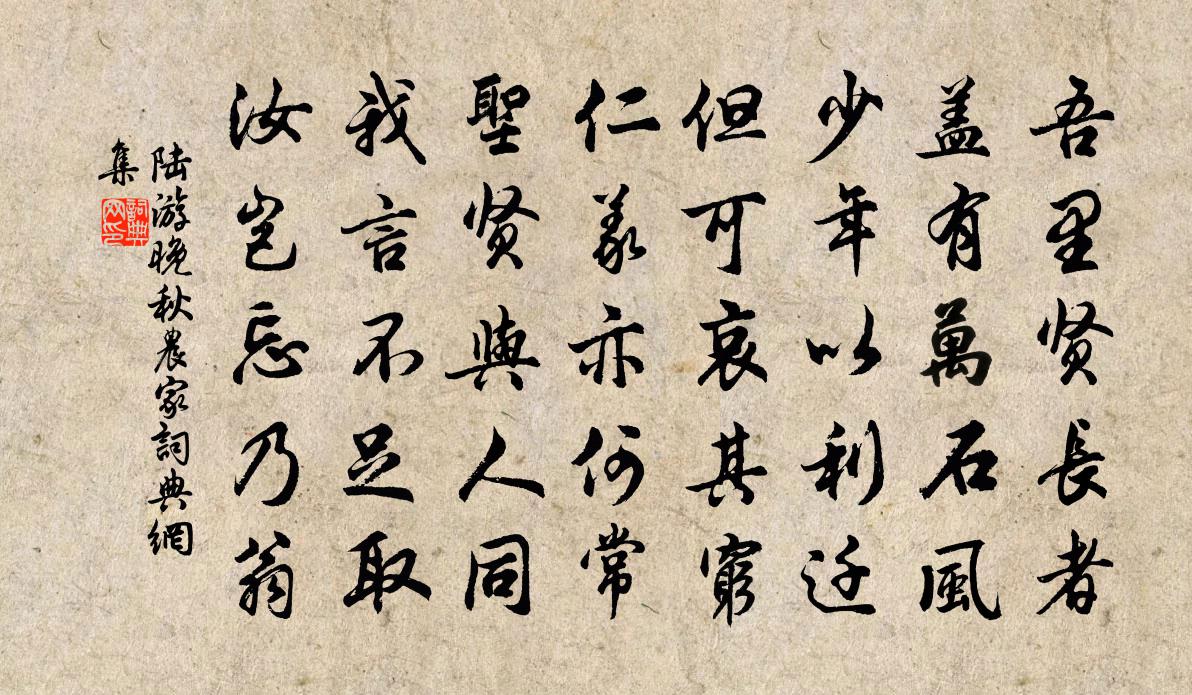 吾里贤長者
盖有萬石風
少年以利迁
但可哀其窮
仁義亦何常
聖贤與人同
我言不足取
汝岂忘乃翁
陆游晚秋農家詞典網
集
詞典
网印